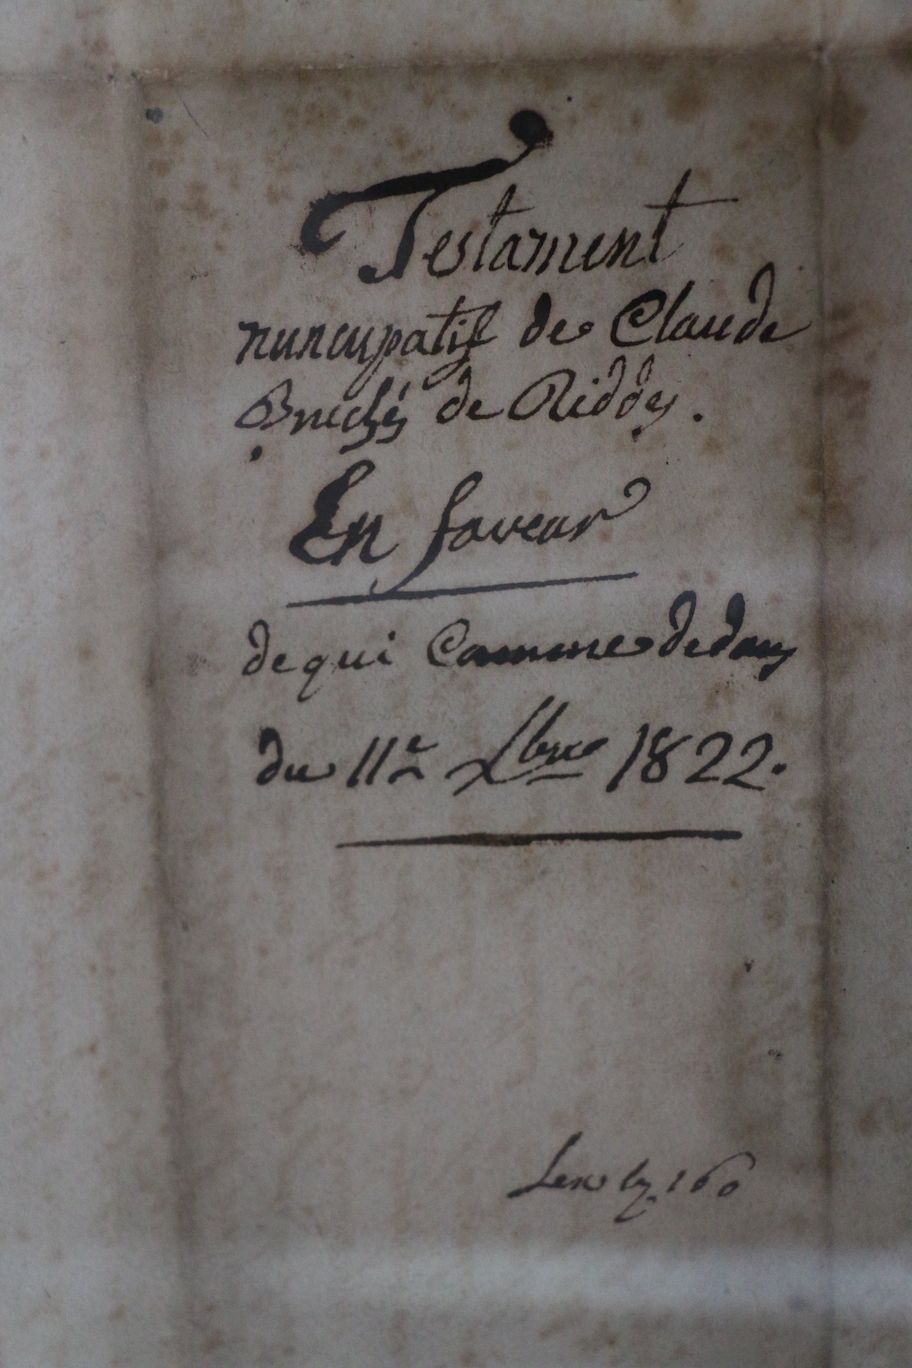 Testament
nuncupatif de Claude
de Riddes.
En faveur
de qui Comme dedans
du 11e Xbre 1822.
160